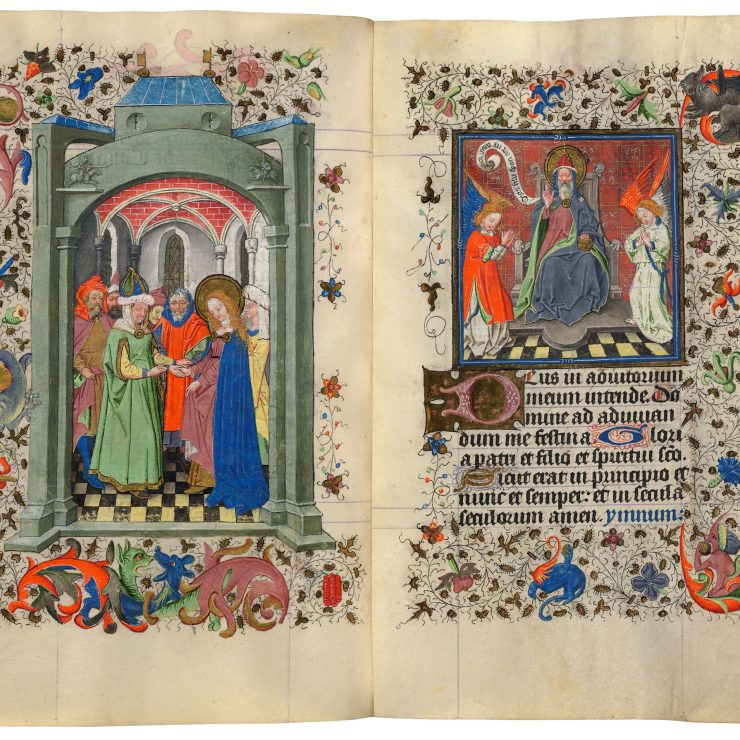 Deus in adiutorium
meum intende. Do
mine ad adiuuan
dum me festina Glori
a patri et filio et spiritui sco
Sicut erat in principio et
nunc et semper: et in secula
seculorum amen. ymnum: